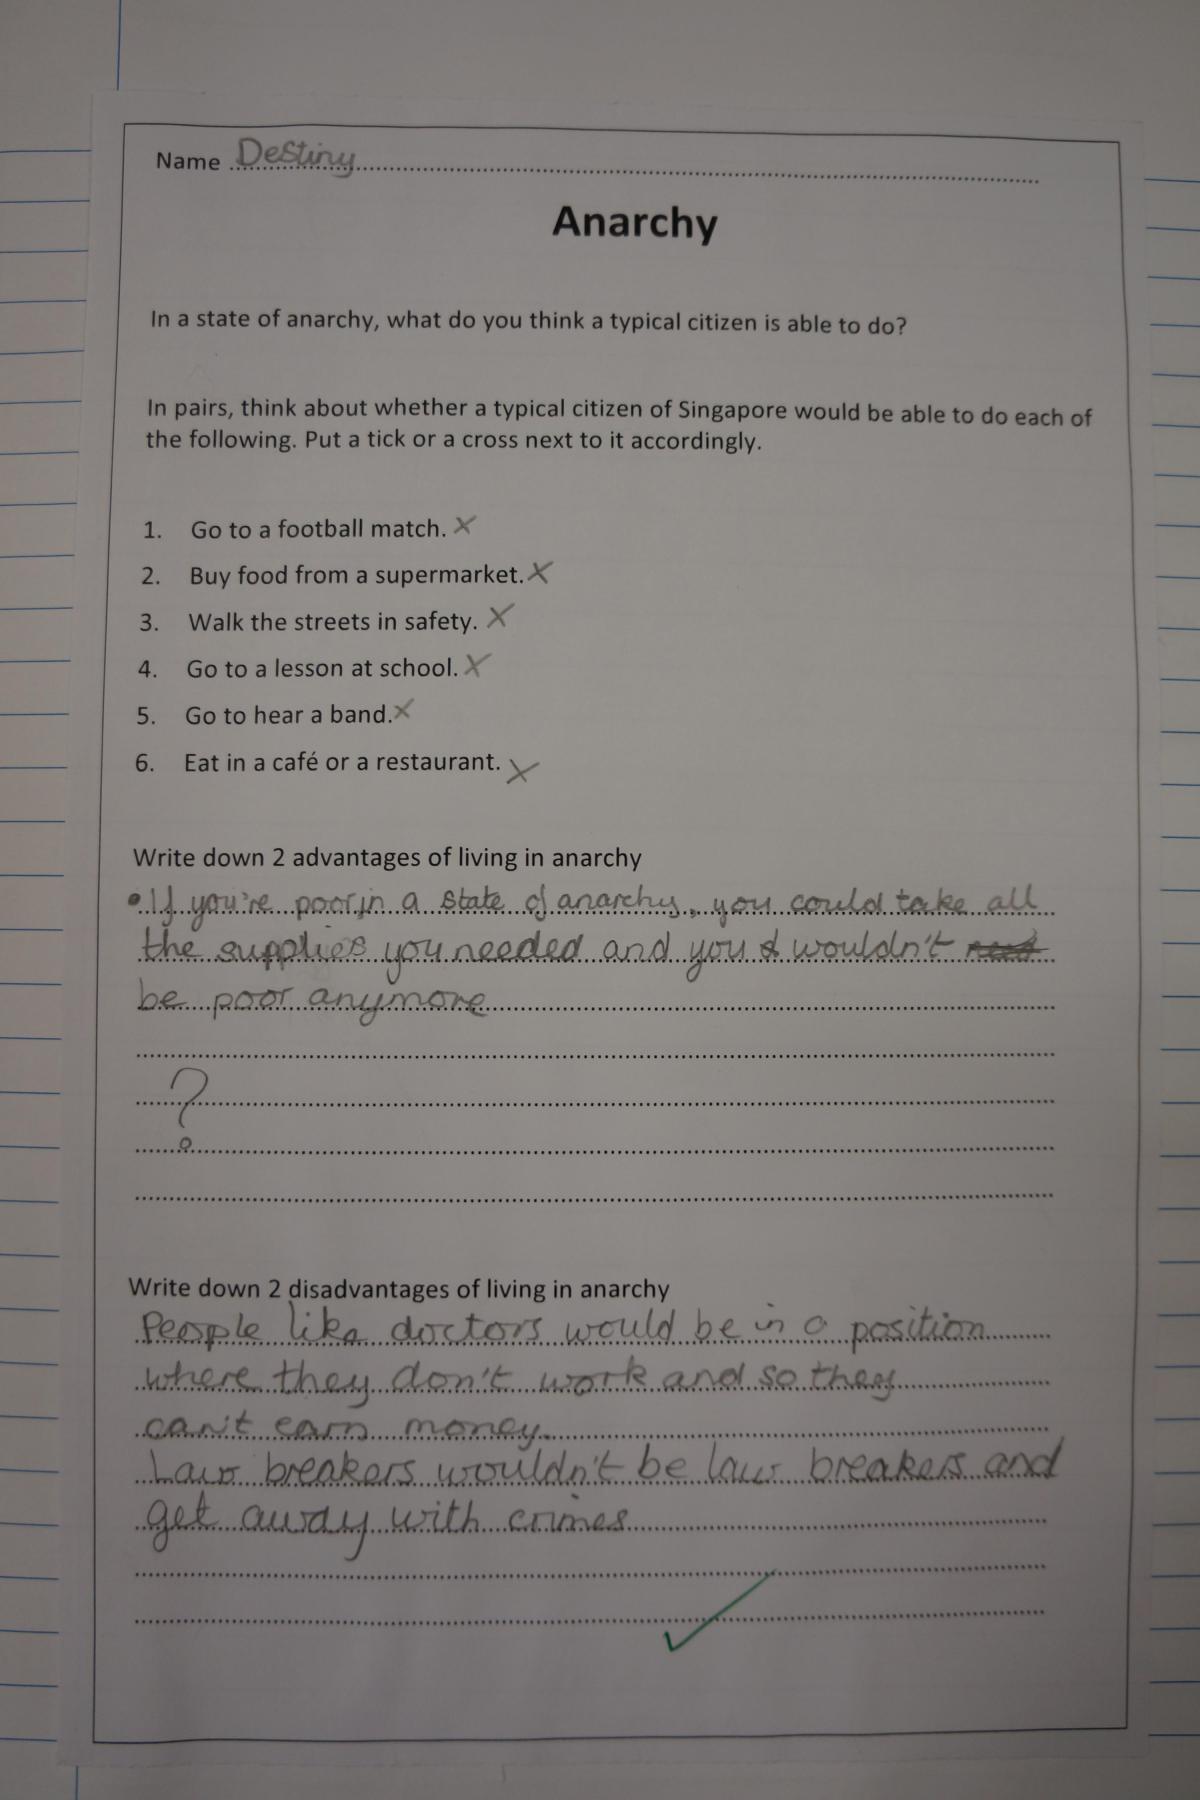 Name Destiny
Anarchy
In a state of anarchy, what do you think a typical citizen is able to do?
In pairs, think about whether a typical citizen of Singapore would be able to do each of
the following. Put a tick or a cross next to it accordingly.
1. Go to a football match. ×
2. Buy food from a supermarket. ×
3. Walk the streets in safety. ×
4. Go to a lesson at school. ×
5. Go to hear a band. ×
6. Eat in a café or a restaurant. ×
Write down 2 advantages of living in anarchy
• If you're poor in a state of anarchy, you could take all
the supplies you needed and you wouldn't
be poor anymore
?
Write down 2 disadvantages of living in anarchy
People like doctors would be in a position
where they don't work and so they
can't earn money.
Law breakers wouldn't be law breakers and
get away with crimes
✓